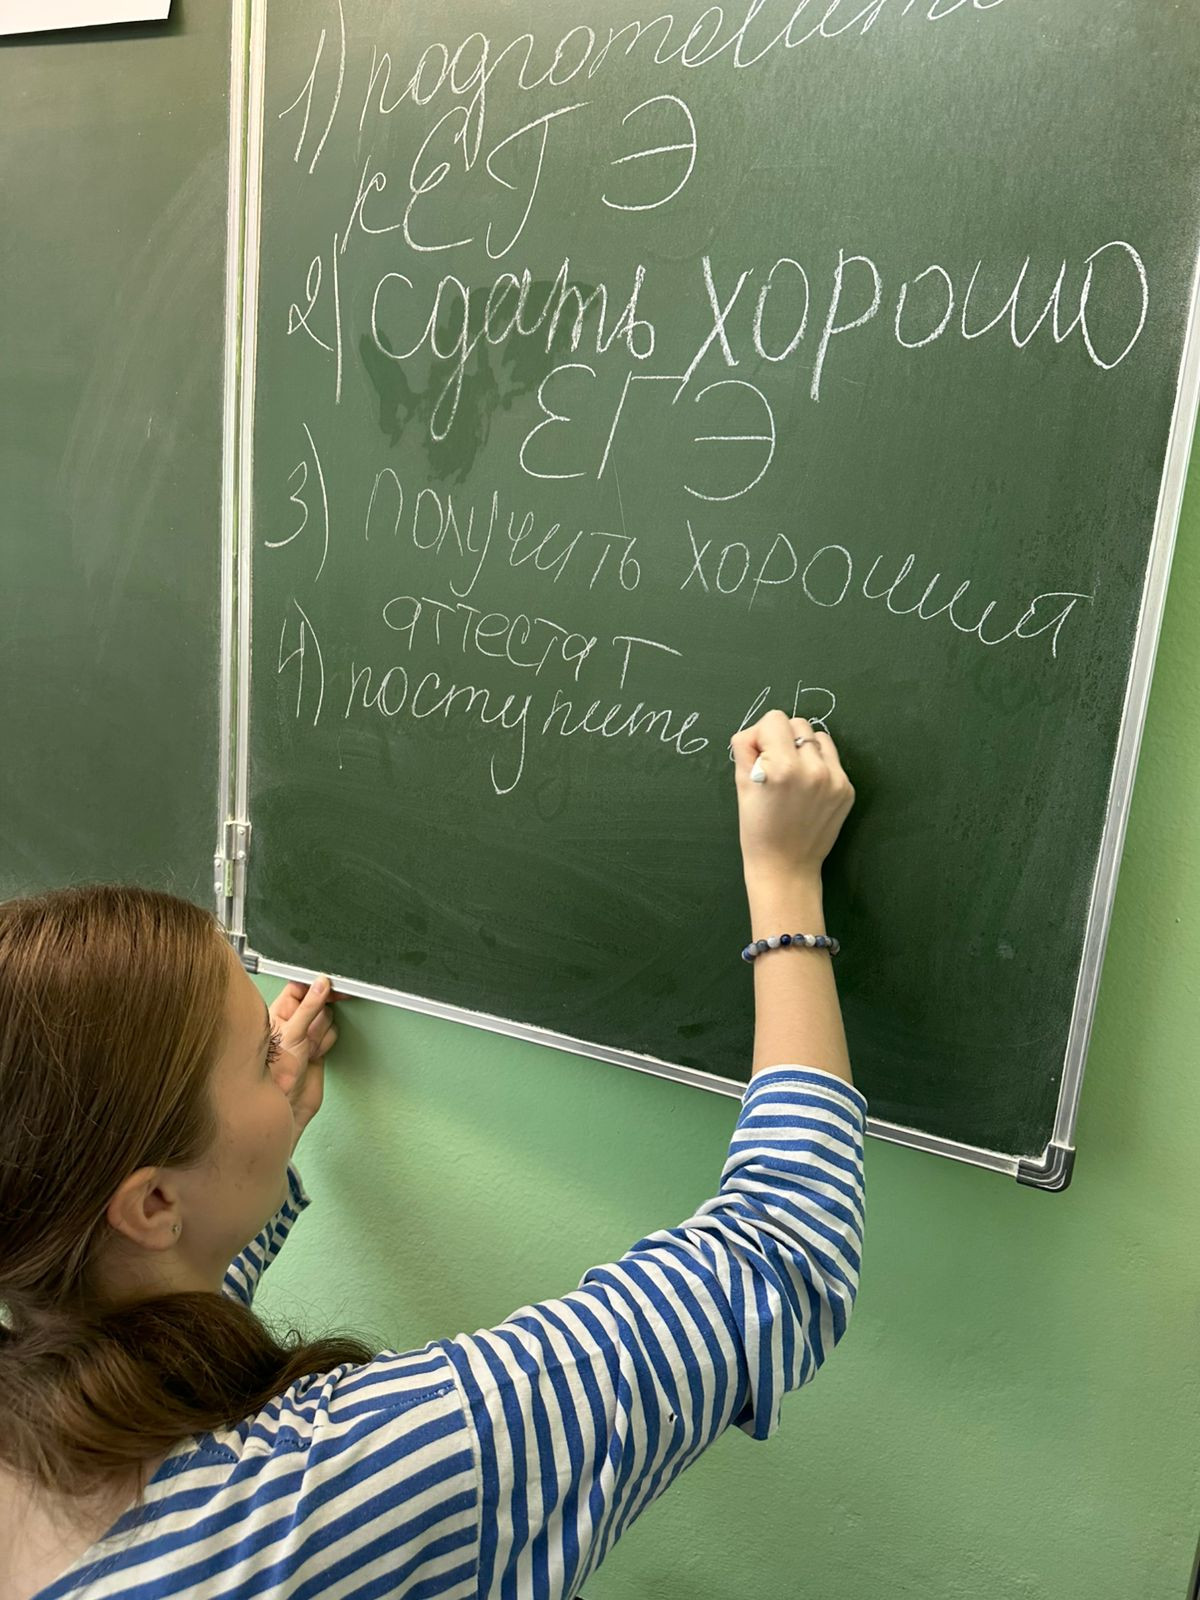 1) подготовить
к ЕГЭ
2) сдать хорошо
ЕГЭ
3) получить хороший
аттестат
4) поступить в В